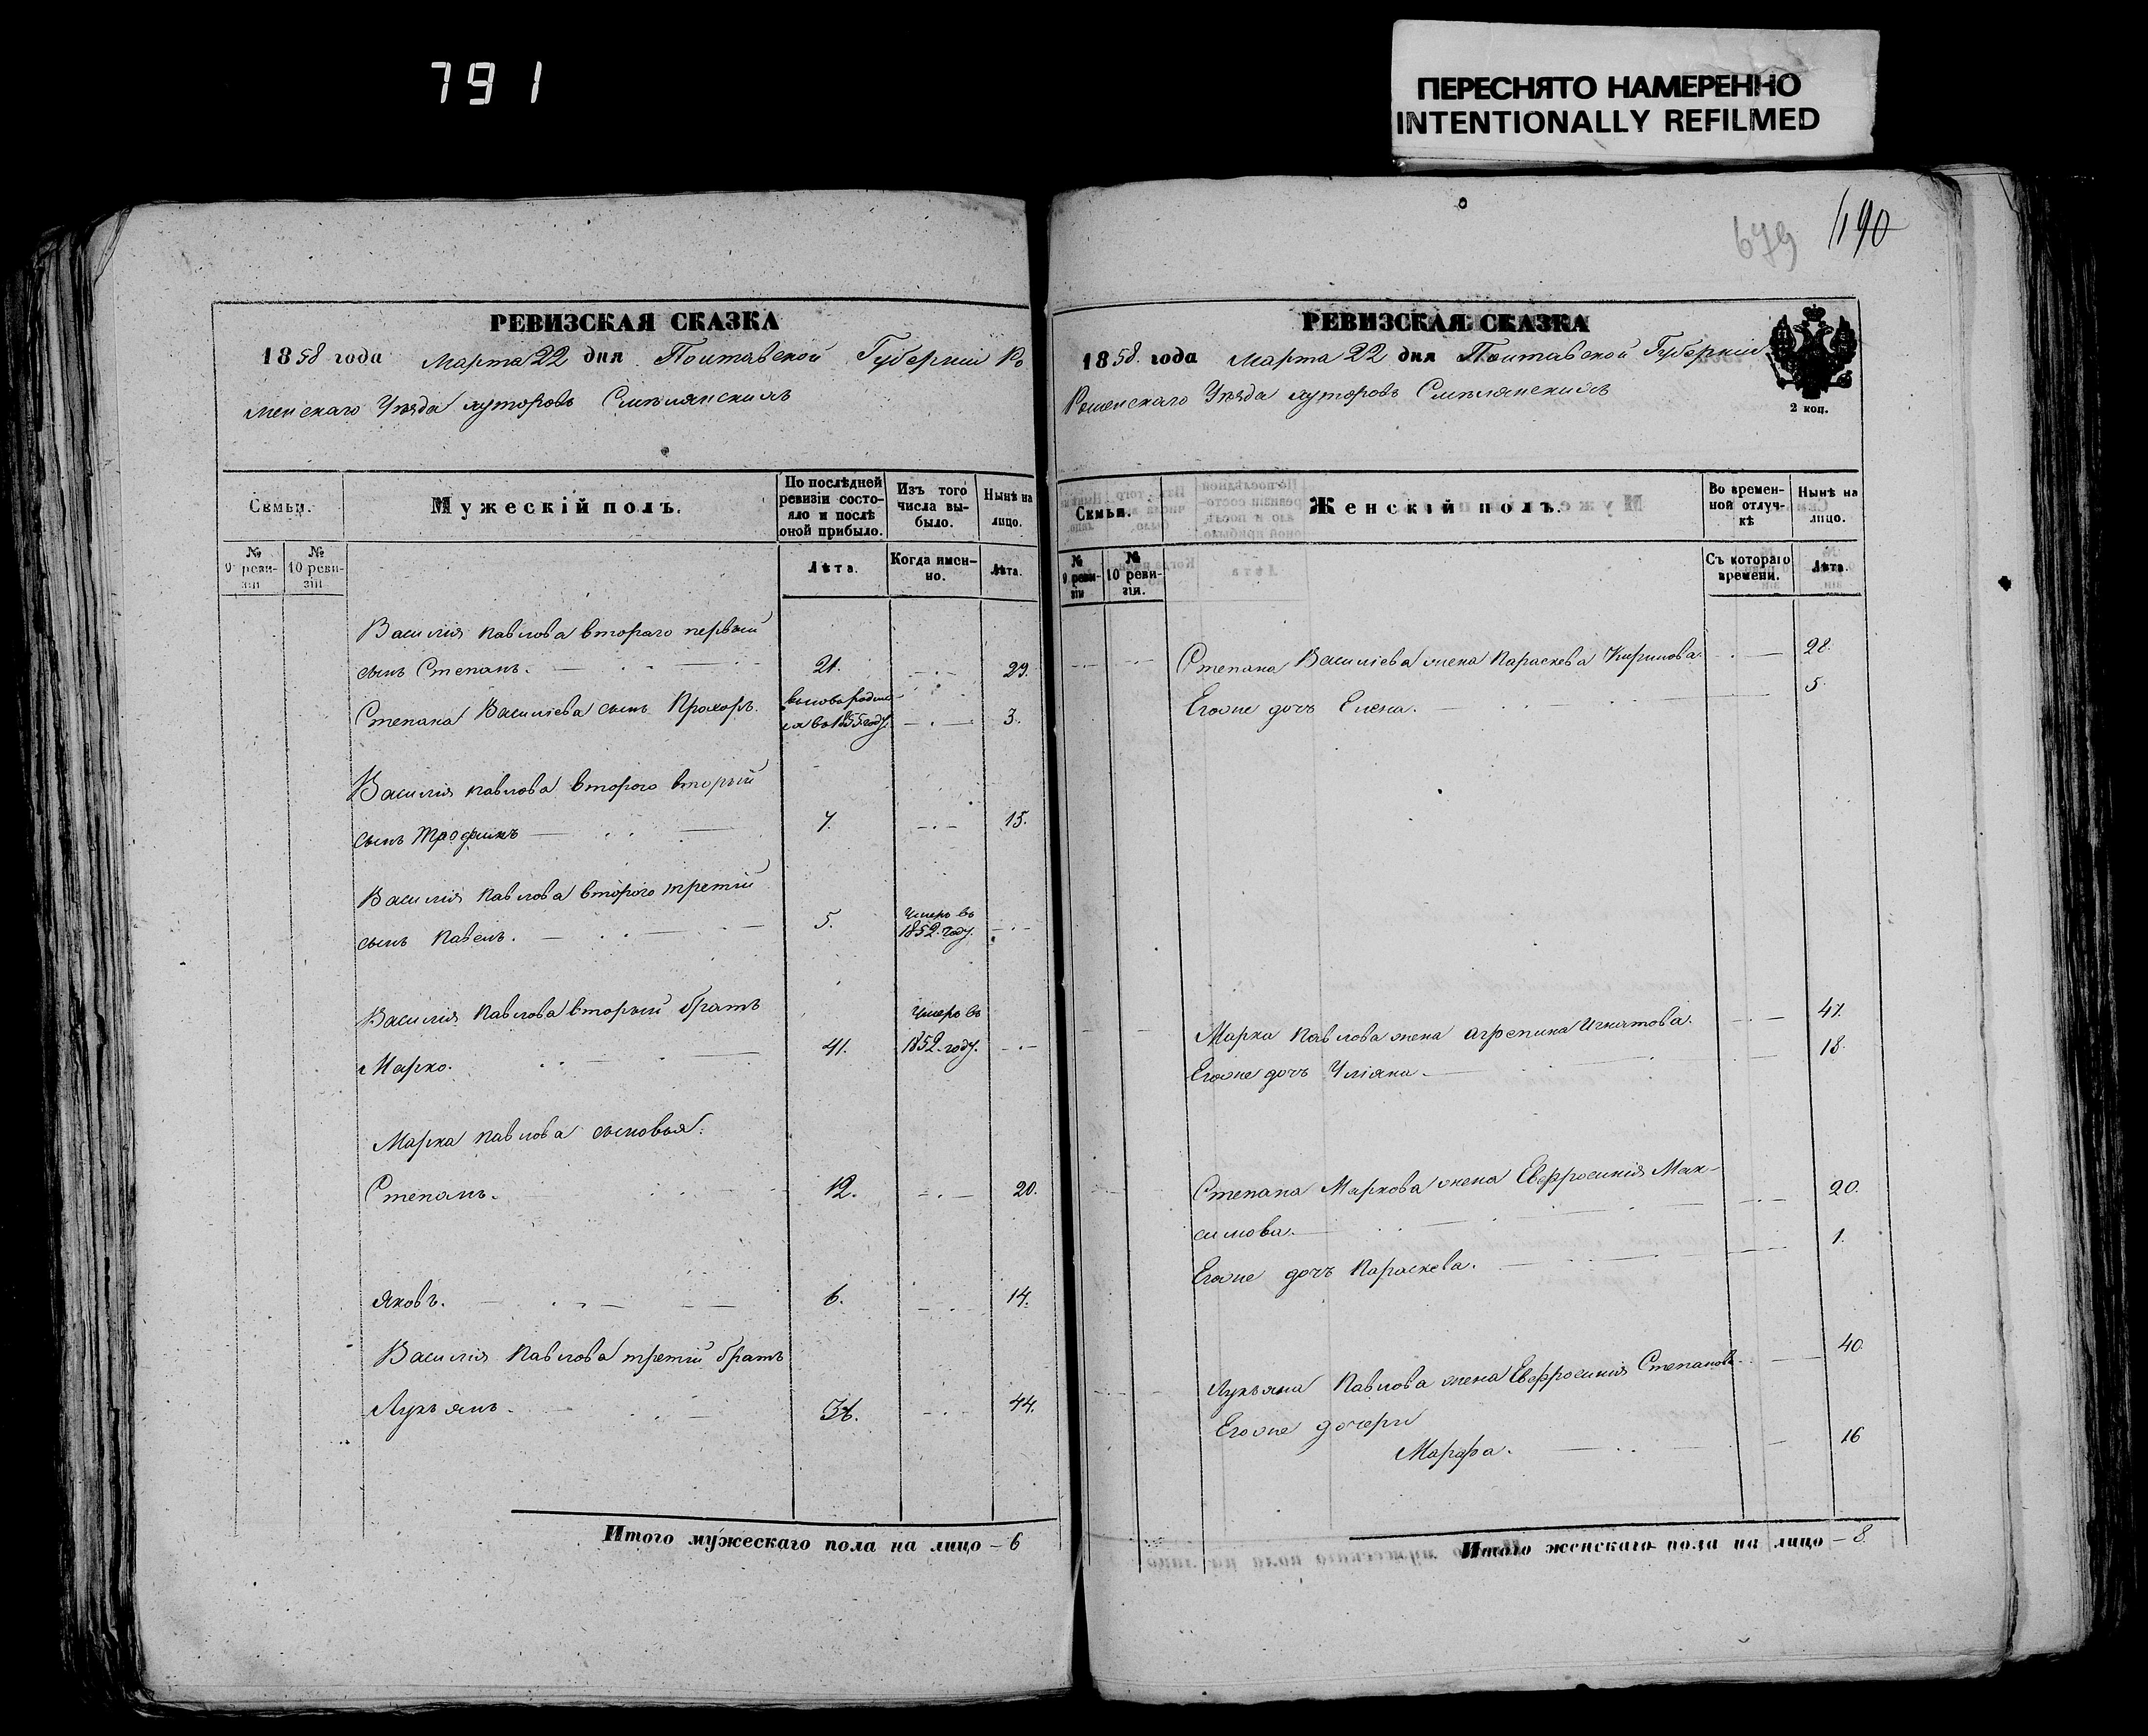 791
ПЕРЕСНЯТО НАМЕРЕННО
INTENTIONALLY REFILMED
РЕВИЗСКАЯ СКАЗКА
1858 года Марта 22 дня Полтавской Губерніи Ро
менскаго Уѣзда хуторовъ Смѣлянскихъ
Семьи.
Мужескій полъ.
По послѣдней ревизіи состояло и послѣ оной прибыло.
Изъ того числа выбыло.
Нынѣ на лицо.
№ 9 ревизіи
№ 10 ревизіи
Лѣта.
Когда именно.
Лѣта.
Василія Павлова втораго первый
сынъ Степанъ. 21. 29.
Степана Василіева сынъ Прохоръ. вновь родился въ 1855 году. 3.
Василія Павлова второго вторый
сынъ Трофимъ 7. 15.
Василія Павлова второго третій
сынъ Павелъ. 5. Умеръ въ 1852. году.
Василія Павлова вторый братъ
Марко. 41. Умеръ въ 1852. году.
Марка Павлова сыновья:
Степанъ. 12. 20.
Яковъ. 6. 14.
Василія Павлова третій братъ
Лукьянъ. 36. 44.
Итого мужескаго пола на лицо – 6
679 190
РЕВИЗСКАЯ СКАЗКА
1858. года Марта 22 дня Полтавской Губерніи
Роменскаго Уѣзда хуторовъ Смѣлянскихъ
2 коп.
Семьи.
Женскій полъ.
Во временной отлучкѣ
Нынѣ на лицо.
№ 9 ревизіи
№ 10 ревизіи.
Съ котораго времени.
Лѣта.
Степана Василіева жена Параскева Кирилова. 28.
Егоже дочь Елена. 5.
Марка Павлова жена Агрепина Игнатова. 47.
Егоже дочь Уліяна. 18.
Степана Маркова жена Евфросинія Мак-
симова. 20.
Егоже дочь Параскева. 1.
Лукьяна Павлова жена Евфросинія Степанова. 40.
Егоже дочери
Марфа. 16
Итого женскаго пола на лицо – 8.